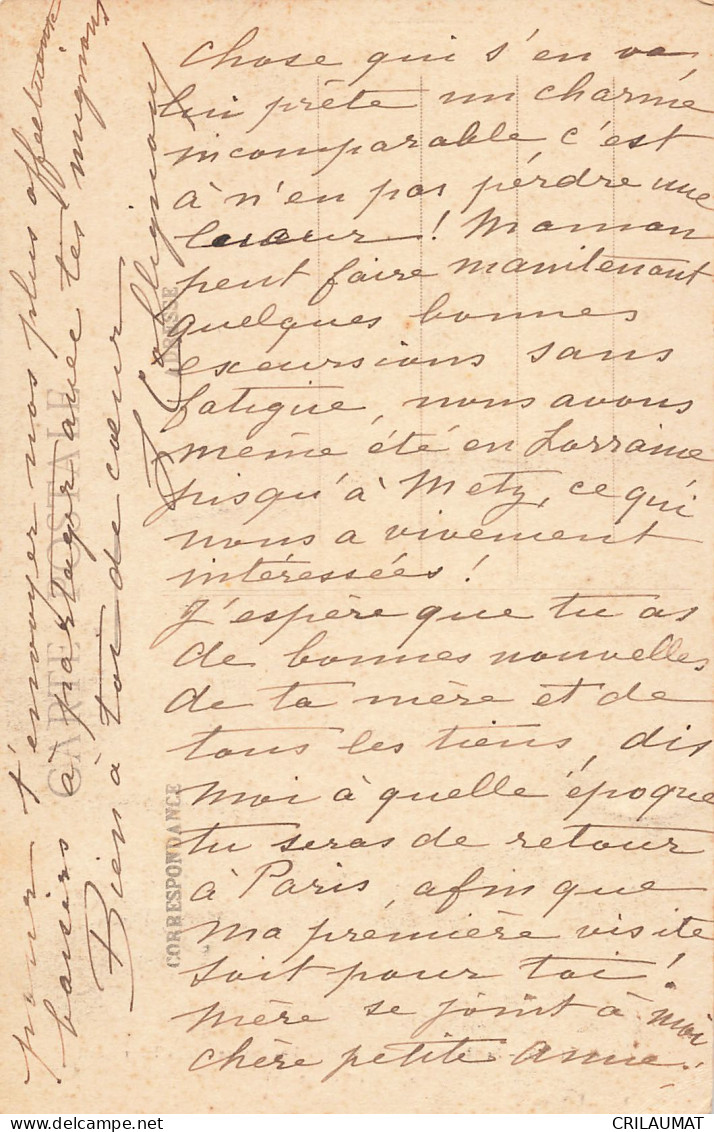 chose qui s'en va
lui prête un charme
incomparable c'est
à n'en pas pérdre une
lueur ! Maman
peut faire maintenant
quelques bonnes
excursions sans
fatigue, nous avons
même été en Lorraine
jusqu'à Metz, ce qui
nous a vivement
intéressées !
J'espère que tu as
de bonnes nouvelles
de ta mère et de
tous les tiens, dis
moi à quelle époque
tu seras de retour
à Paris, afin que
ma première visite
soit pour toi !
Mère se joint à moi
chère petite Anne.
pour t'envoyer nos plus affectueux
baisers à partager avec tes mignons
Bien à toi de coeur
CARTE POSTALE
CORRESPONDANCE
ADRESSE
CRILAUMAT